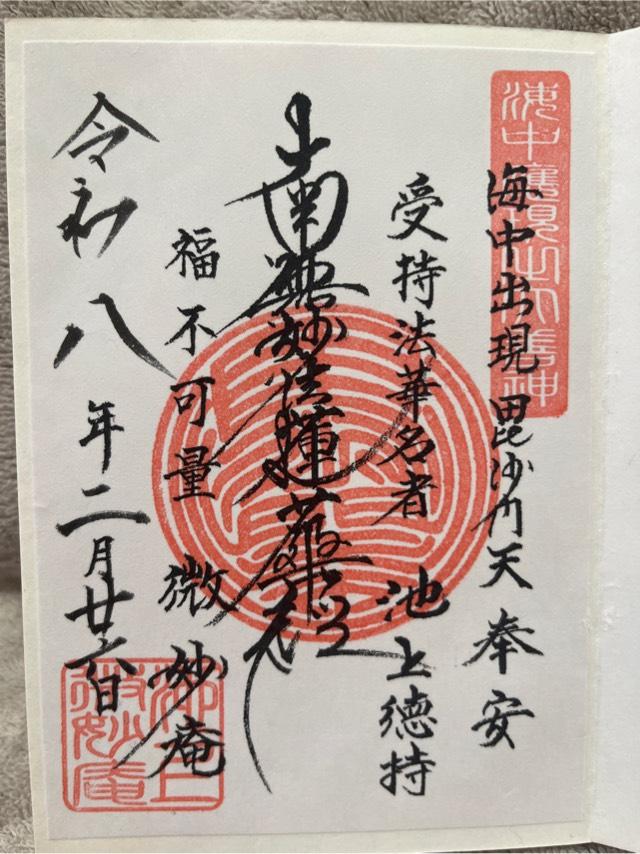 海中出現毘沙门天奉安
受持法華名者 池上徳持
南無妙法蓮華経
福不可量 微妙庵
令和八年二月廿六日
池上
微妙庵